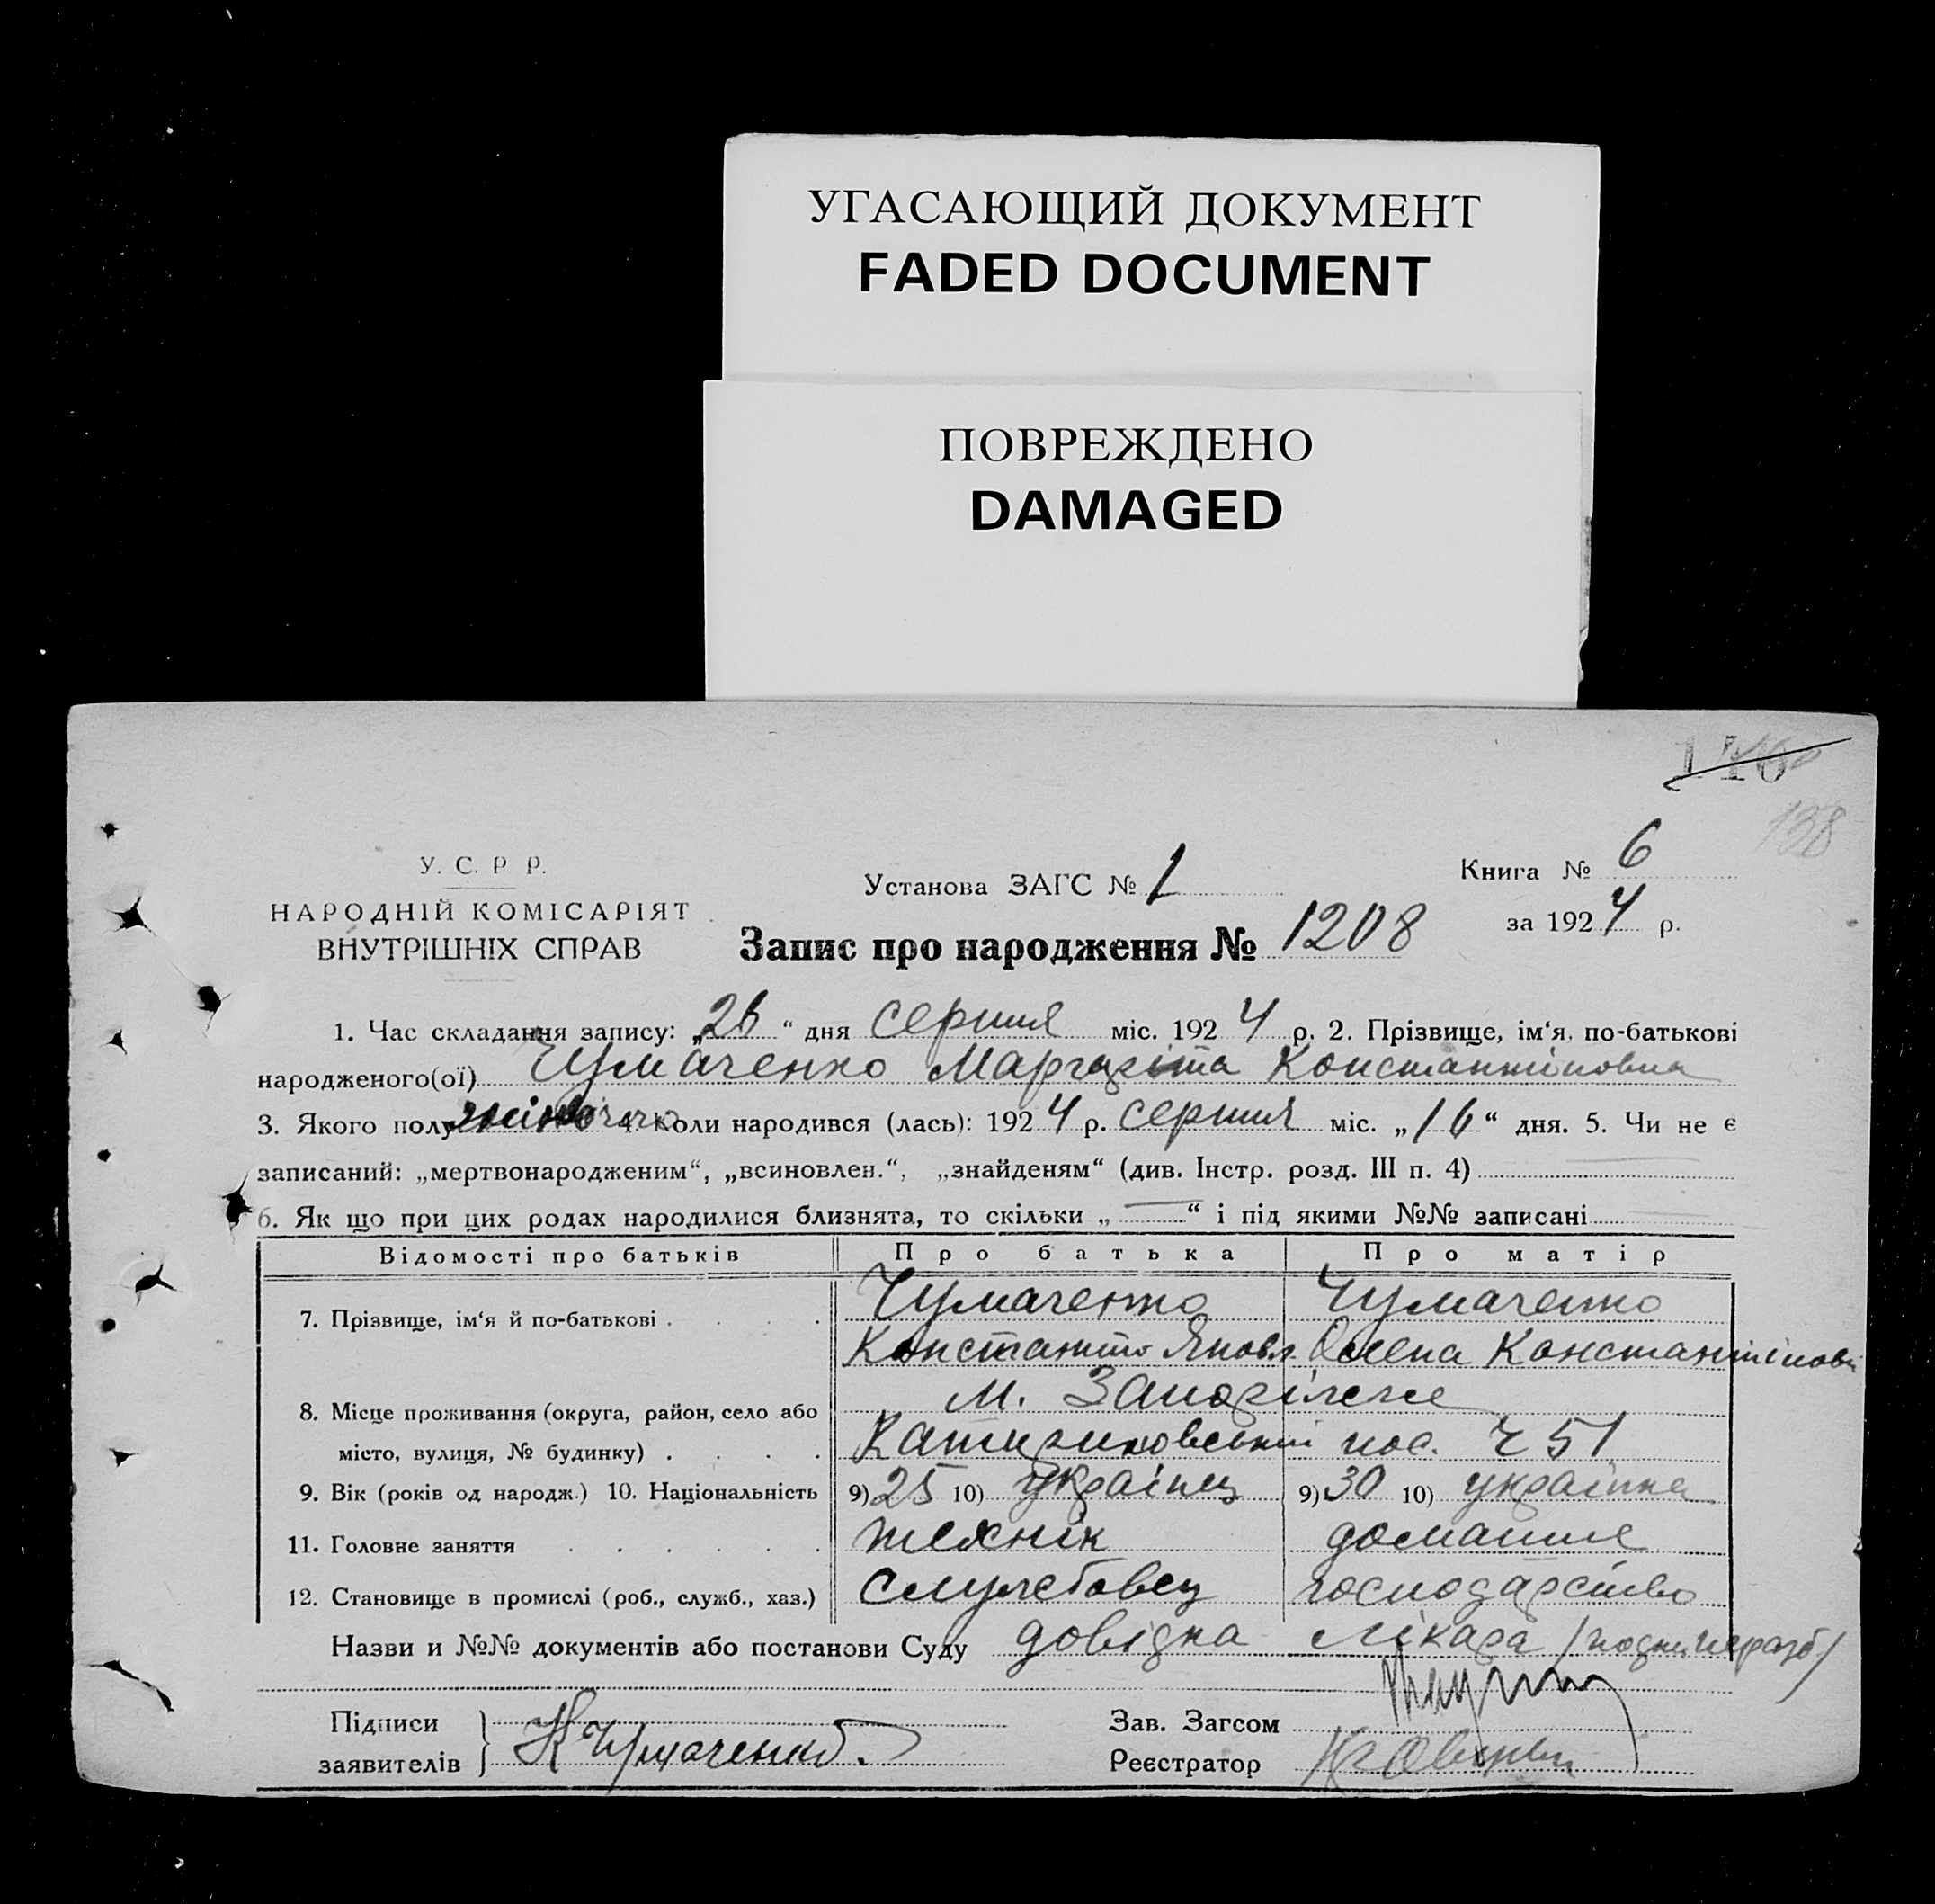 УГАСАЮЩИЙ ДОКУМЕНТ
FADED DOCUMENT
ПОВРЕЖДЕНО
DAMAGED
138
У. С. Р Р.
НАРОДНІЙ КОМІСАРІЯТ
ВНУТРІШНІХ СПРАВ
Установа ЗАГС № 1
Книга № 6
за 1924 р.
Запис про народження № 1208
1. Час складання запису: „26“ дня серпня міс. 1924 р. 2. Прізвище, ім‘я, по-батькові
народженого(ої) Чумаченко Маргаріта Константіновна
3. Якого полу жіночо 4. Коли народився (лась): 1924 р. серпня міс. „16“ дня. 5. Чи не є
записаний: „мертвонародженим“, „всиновлен.“, „знайденям“ (див. Інстр. розд. III п. 4)
6. Як що при цих родах народилися близнята, то скільки „—“ і під якими №№ записані
Відомості про батьків Про батька Про матір
7. Прізвище, ім‘я й по-батькові Чумаченко Чумаченко
Константин Яковл. Олена Константіновн
8. Місце проживання (округа, район, село або м. Запоріжже
місто, вулиця, № будинку) пос. 51
9. Вік (років од народж.) 10. Національність 9) 25 10) українець 9) 30 10) українка
11. Головне заняття технік домашнє
12. Становище в промислі (роб., служб., хаз.) службовец господарство
Назви и №№ документів або постанови Суду довідка лікаря
Підписи
заявителів } К Чумаченко.
Зав. Загсом
Реєстратор